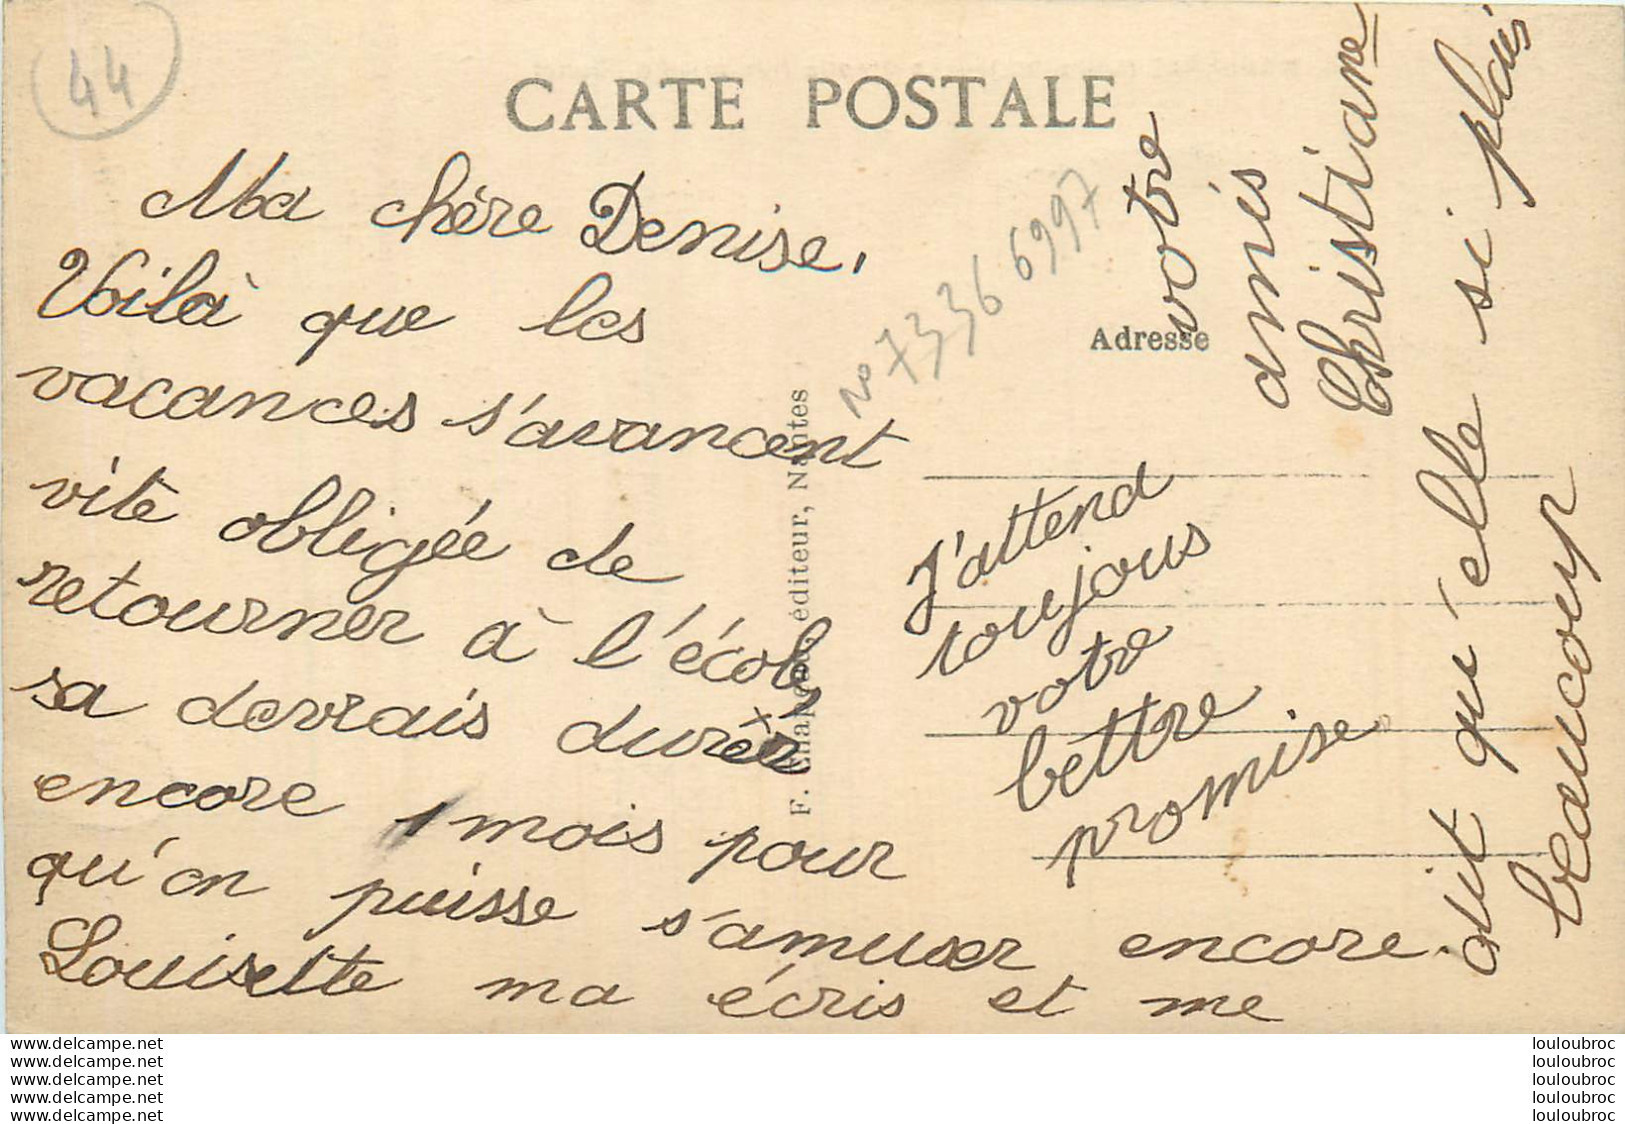 44
CARTE POSTALE
Ma chère Denise,
Voilà que les
vacances s'avancent
vite obligée de
retourner à l'école,
sa devrais durer
encore 1 mois pour
qu'on puisse s'amuser encore.
Louisette ma écris et me
dit qu'elle si plais
beaucoup
J'attend
toujours
votre
lettre
promise
votre
amis
Christiane
Adresse
N° 7336 6997
F. Chapeau, éditeur, Nantes
www.delcampe.net
www.delcampe.net
www.delcampe.net
www.delcampe.net
www.delcampe.net
louloubroc
louloubroc
louloubroc
louloubroc
louloubroc